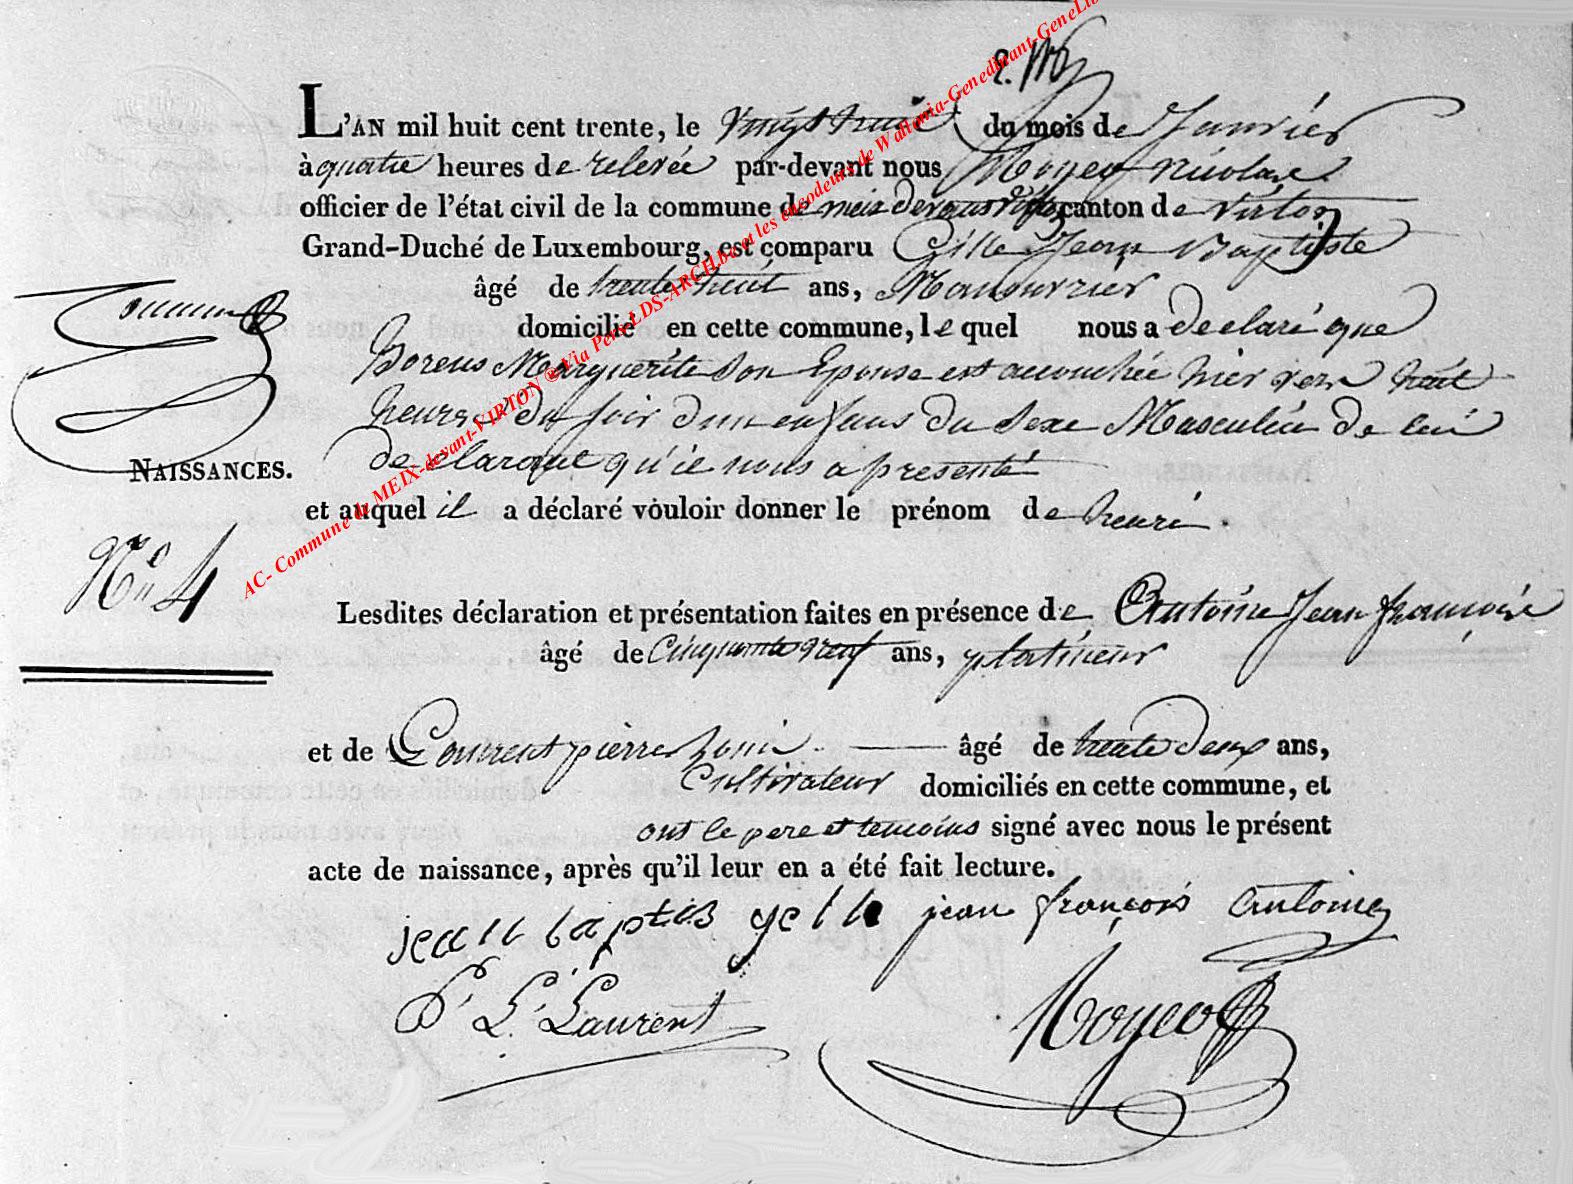 L'AN mil huit cent trente, le vingt huit du mois de Janvier
à quatre heures de relevée par-devant nous Nicolas
officier de l'état civil de la commune de meix devant virton canton de virton
Grand-Duché de Luxembourg, est comparu Gille Jean Baptiste
âgé de trente huit ans, Manouvrier
domicilié en cette commune, le quel nous a declaré que
Marguerite Son Epouse est accouchée hier vers huit
heures du soir d'un enfans du Sexe Masculin de lui
declarant qu'il nous a presenté
NAISSANCES.
et auquel il a déclaré vouloir donner le prénom de henri.
N.º 4
Lesdites déclaration et présentation faites en présence de Antoine Jean françois
âgé de Cinquante neuf ans, platineur
et de pierre âgé de trente deux ans,
Cultivateur domiciliés en cette commune, et
ont le pere et temoins signé avec nous le présent
acte de naissance, après qu'il leur en a été fait lecture.
jean baptis gelle jean françois antoine
P. L. Laurent
AC- Commune de MEIX-devant-VIRTON ® Via Pers LDS-ARCH.be et les encodeurs de Wallonia-Genedinant-GeneLib